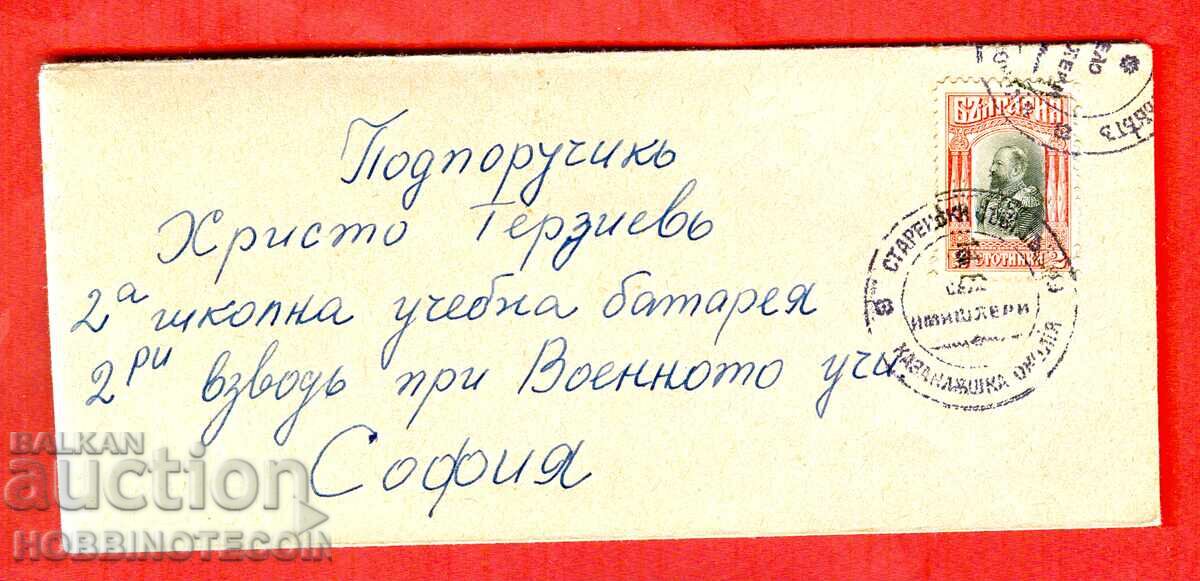 Подпоручикь
Христо Терзиевь
2ª школна учебна батарея
2ри взводь при Военното учи
София
БЪЛГАРИЯ
СТОТИНКИ 2
СТАРЕЙ
ИМИШЛЕРИ
КАЗАНЛЪШКА ОКОЛИЯ
BALKAN
auction
HOBBINOTECOIN